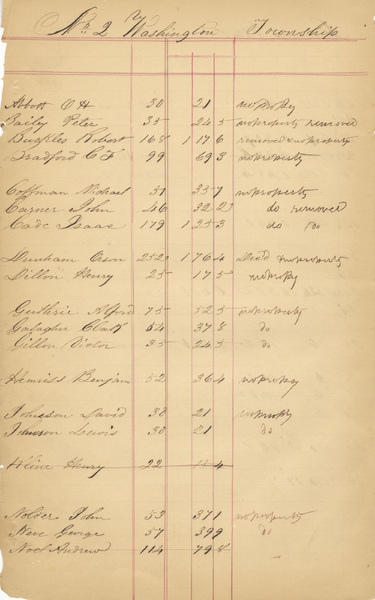 No 2 Washington Township
Abbott C H 30 21 no propty
Bailey Peter 35 24 5 no property removed
Buckles Robert 168 1 17 6 removed & no property
Bradford C F 99 69 3 no property
Coffman Michael 51 35 7 no property
Carner John 46 32 2 do removed
Cade Isaac 179 1 25 3 do do
Dunham 252 1 76 4 Dead no property
Dillon Henry 25 17 5 no propty
Guthrie Alford 75 52 5 no property
Galagher 54 37 8 do
Gillon Victor 35 24 5 do
Benjam 52 36 4 no propty
Johnson David 30 21 no propty
Johnson Lewis 30 21 do
Kline Henry 22 4
Nolder John 53 37 1 no property
George 57 39 9 do
Noel Andrew 114 79 8